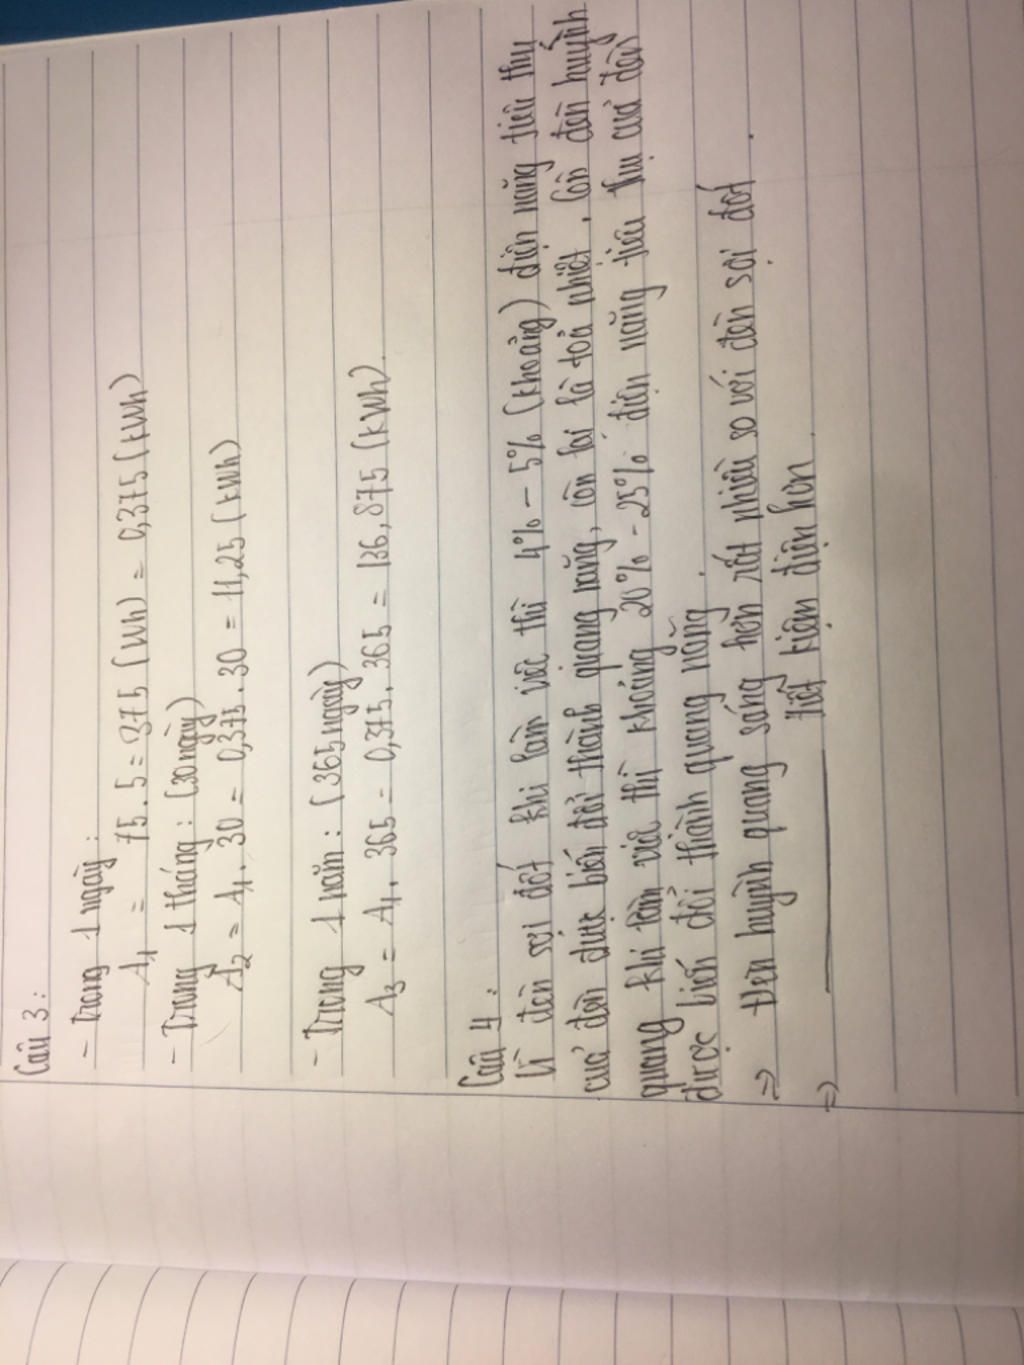 Câu 3:
- Trong 1 ngày:
A1 = 75.5 = 375 (Wh) = 0,375 (kWh)
- Trong 1 tháng: (30 ngày)
A2 = A1. 30 = 0,375. 30 = 11,25 (kWh)
- Trong 1 năm: (365 ngày)
A3 = A1. 365 = 0,375. 365 = 136,875 (kWh).
Câu 4:
Vì đèn sợi đốt khi làm việc thì 4% - 5% (khoảng) điện năng tiêu thụ
của đèn được biến đổi thành quang năng, còn lại là tỏa nhiệt. Còn đèn huỳnh
quang khi làm việc thì khoảng 20% - 25% điện năng tiêu thụ của đèn
được biến đổi thành quang năng.
=> Đèn huỳnh quang sáng hơn rất nhiều so với đèn sợi đốt.
=> ______ tiết kiệm điện hơn.